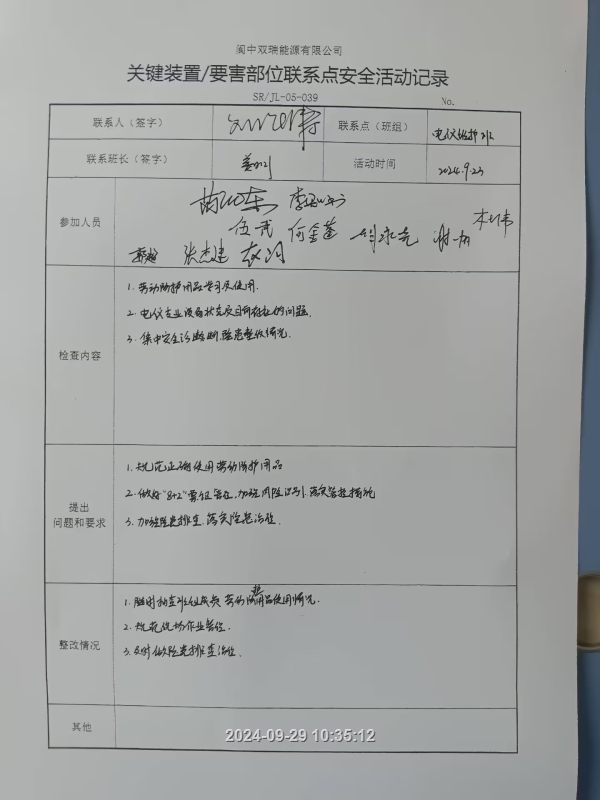 阆中双瑞能源有限公司
关键装置/要害部位联系点安全活动记录
SR/JL-05-039
No.
联系人（签字）
联系点（班组）
电仪维护班
联系班长（签字）
活动时间
2024.9.23
参加人员
伍武 何金莲
张杰建
检查内容
1. 劳动防护用品学习及使用.
2. 电仪专业设备状态及目前存在的问题.
3. 集中安全诊断, 隐患整改情况.
提出
问题和要求
1. 规范正确使用劳动防护用品
2. 做好"8+2"票证管控, 加强风险识别, 落实管控措施
3. 加强隐患排查, 落实隐患治理.
整改情况
1. 随时抽查班组成员劳动防护用品使用情况.
2. 规范现场作业管控.
3. 及时做隐患排查治理.
其他
2024-09-29 10:35:12